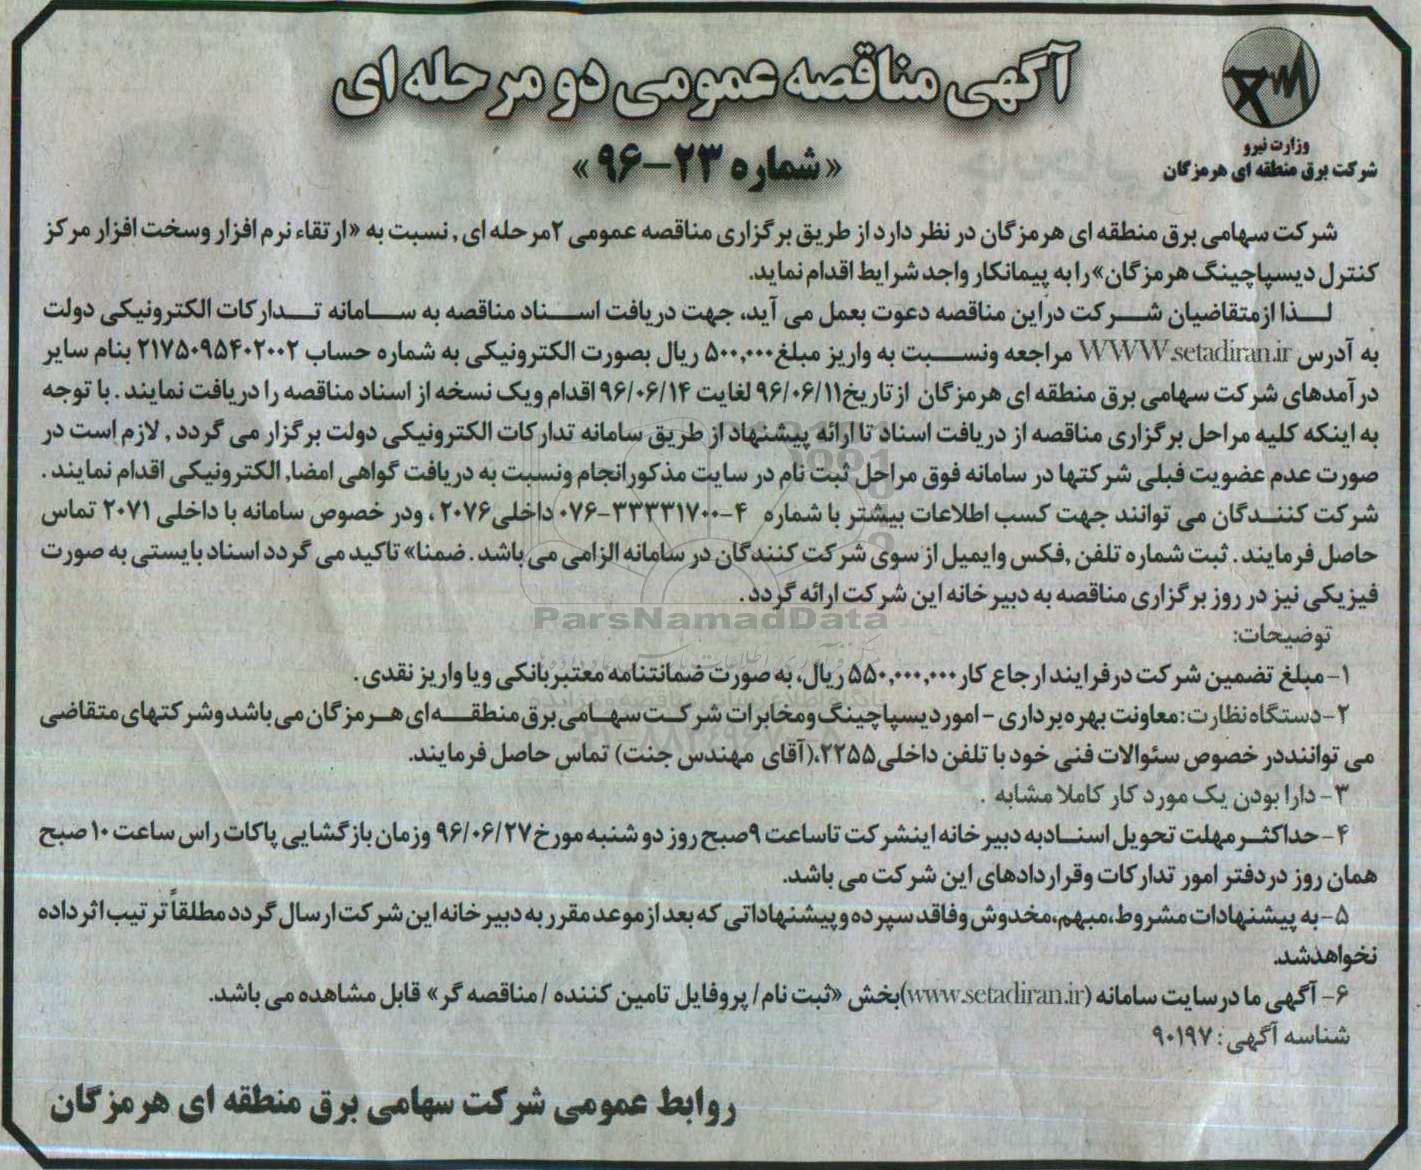 آگهی مناقصه عمومی دو مرحله ای
«شماره ۲۳-۹۶»
وزارت نیرو
شرکت برق منطقه ای هرمزگان
شرکت سهامی برق منطقه ای هرمزگان در نظر دارد از طریق برگزاری مناقصه عمومی ۲مرحله ای , نسبت به «ارتقاء نرم افزار وسخت افزار مرکز
کنترل دیسپاچینگ هرمزگان»را به پیمانکار واجد شرایط اقدام نماید.
لـــذا ازمتقاضیان شـــرکت دراین مناقصه دعوت بعمل می آید، جهت دریافت اســـناد مناقصه به ســـامانه تـــدارکات الکترونیکی دولت
به آدرس WWW.setadiran.ir مراجعه ونســـبت به واریز مبلغ۵۰۰,۰۰۰ ریال بصورت الکترونیکی به شماره حساب ۲۱۷۵۰۹۵۴۰۲۰۰۲ بنام سایر
درآمدهای شرکت سهامی برق منطقه ای هرمزگان ازتاریخ۹۶/۰۶/۱۱ لغایت ۹۶/۰۶/۱۴ اقدام ویک نسخه از اسناد مناقصه را دریافت نمایند . با توجه
به اینکه کلیه مراحل برگزاری مناقصه از دریافت اسناد تا ارائه پیشنهاد از طریق سامانه تدارکات الکترونیکی دولت برگزار می گردد , لازم است در
صورت عدم عضویت قبلی شرکتها در سامانه فوق مراحل ثبت نام در سایت مذکورانجام ونسبت به دریافت گواهی امضاء الکترونیکی اقدام نمایند .
شرکت کننـــدگان می توانند جهت کسب اطلاعات بیشتر با شماره ۴-۳۳۳۳۱۷۰۰-۰۷۶ داخلی۲۰۷۶ ، ودر خصوص سامانه با داخلی ۲۰۷۱ تماس
حاصل فرمایند . ثبت شماره تلفن ,فکس وایمیل از سوی شرکت کنندگان در سامانه الزامی می باشد . ضمنا» تاکید می گردد اسناد بایستی به صورت
فیزیکی نیز در روز برگزاری مناقصه به دبیرخانه این شرکت ارائه گردد .
ParsNamadData
توضیحات:
۱-مبلغ تضمین شرکت درفرایند ارجاع کار۵۵۰,۰۰۰,۰۰۰ ریال، به صورت ضمانتنامه معتبربانکی ویا واریز نقدی .
۲-دستگاه نظارت:معاونت بهره برداری - اموردیسپاچینگ ومخابرات شرکت سهامی برق منطقه ای هرمزگان می باشد وشرکتهای متقاضی
می تواننددر خصوص سئوالات فنی خود با تلفن داخلی۲۲۵۵،(آقای مهندس جنت) تماس حاصل فرمایند.
۳- دارا بودن یک مورد کار کاملا مشابه .
۴-حداکثـرمهلت تحویل اسنـادبه دبیرخانه اینشرکت تاساعت ۹صبح روز دو شنبه مورخ۹۶/۰۶/۲۷ وزمان بازگشایی پاکات راس ساعت ۱۰ صبح
همان روز دردفتر امور تدارکات وقراردادهای این شرکت می باشد.
۵-به پیشنهادات مشروط،مبهم،مخدوش وفاقد سپرده وپیشنهاداتی که بعد ازموعد مقرر به دبیرخانه این شرکت ارسال گردد مطلقاً ترتیب اثرداده
نخواهدشد.
۶- آگهی ما درسایت سامانه (www.setadiran.ir)بخش «ثبت نام/ پروفایل تامین کننده /مناقصه گر» قابل مشاهده می باشد.
شناسه آگهی : ۹۰۱۹۷
روابط عمومی شرکت سهامی برق منطقه ای هرمزگان